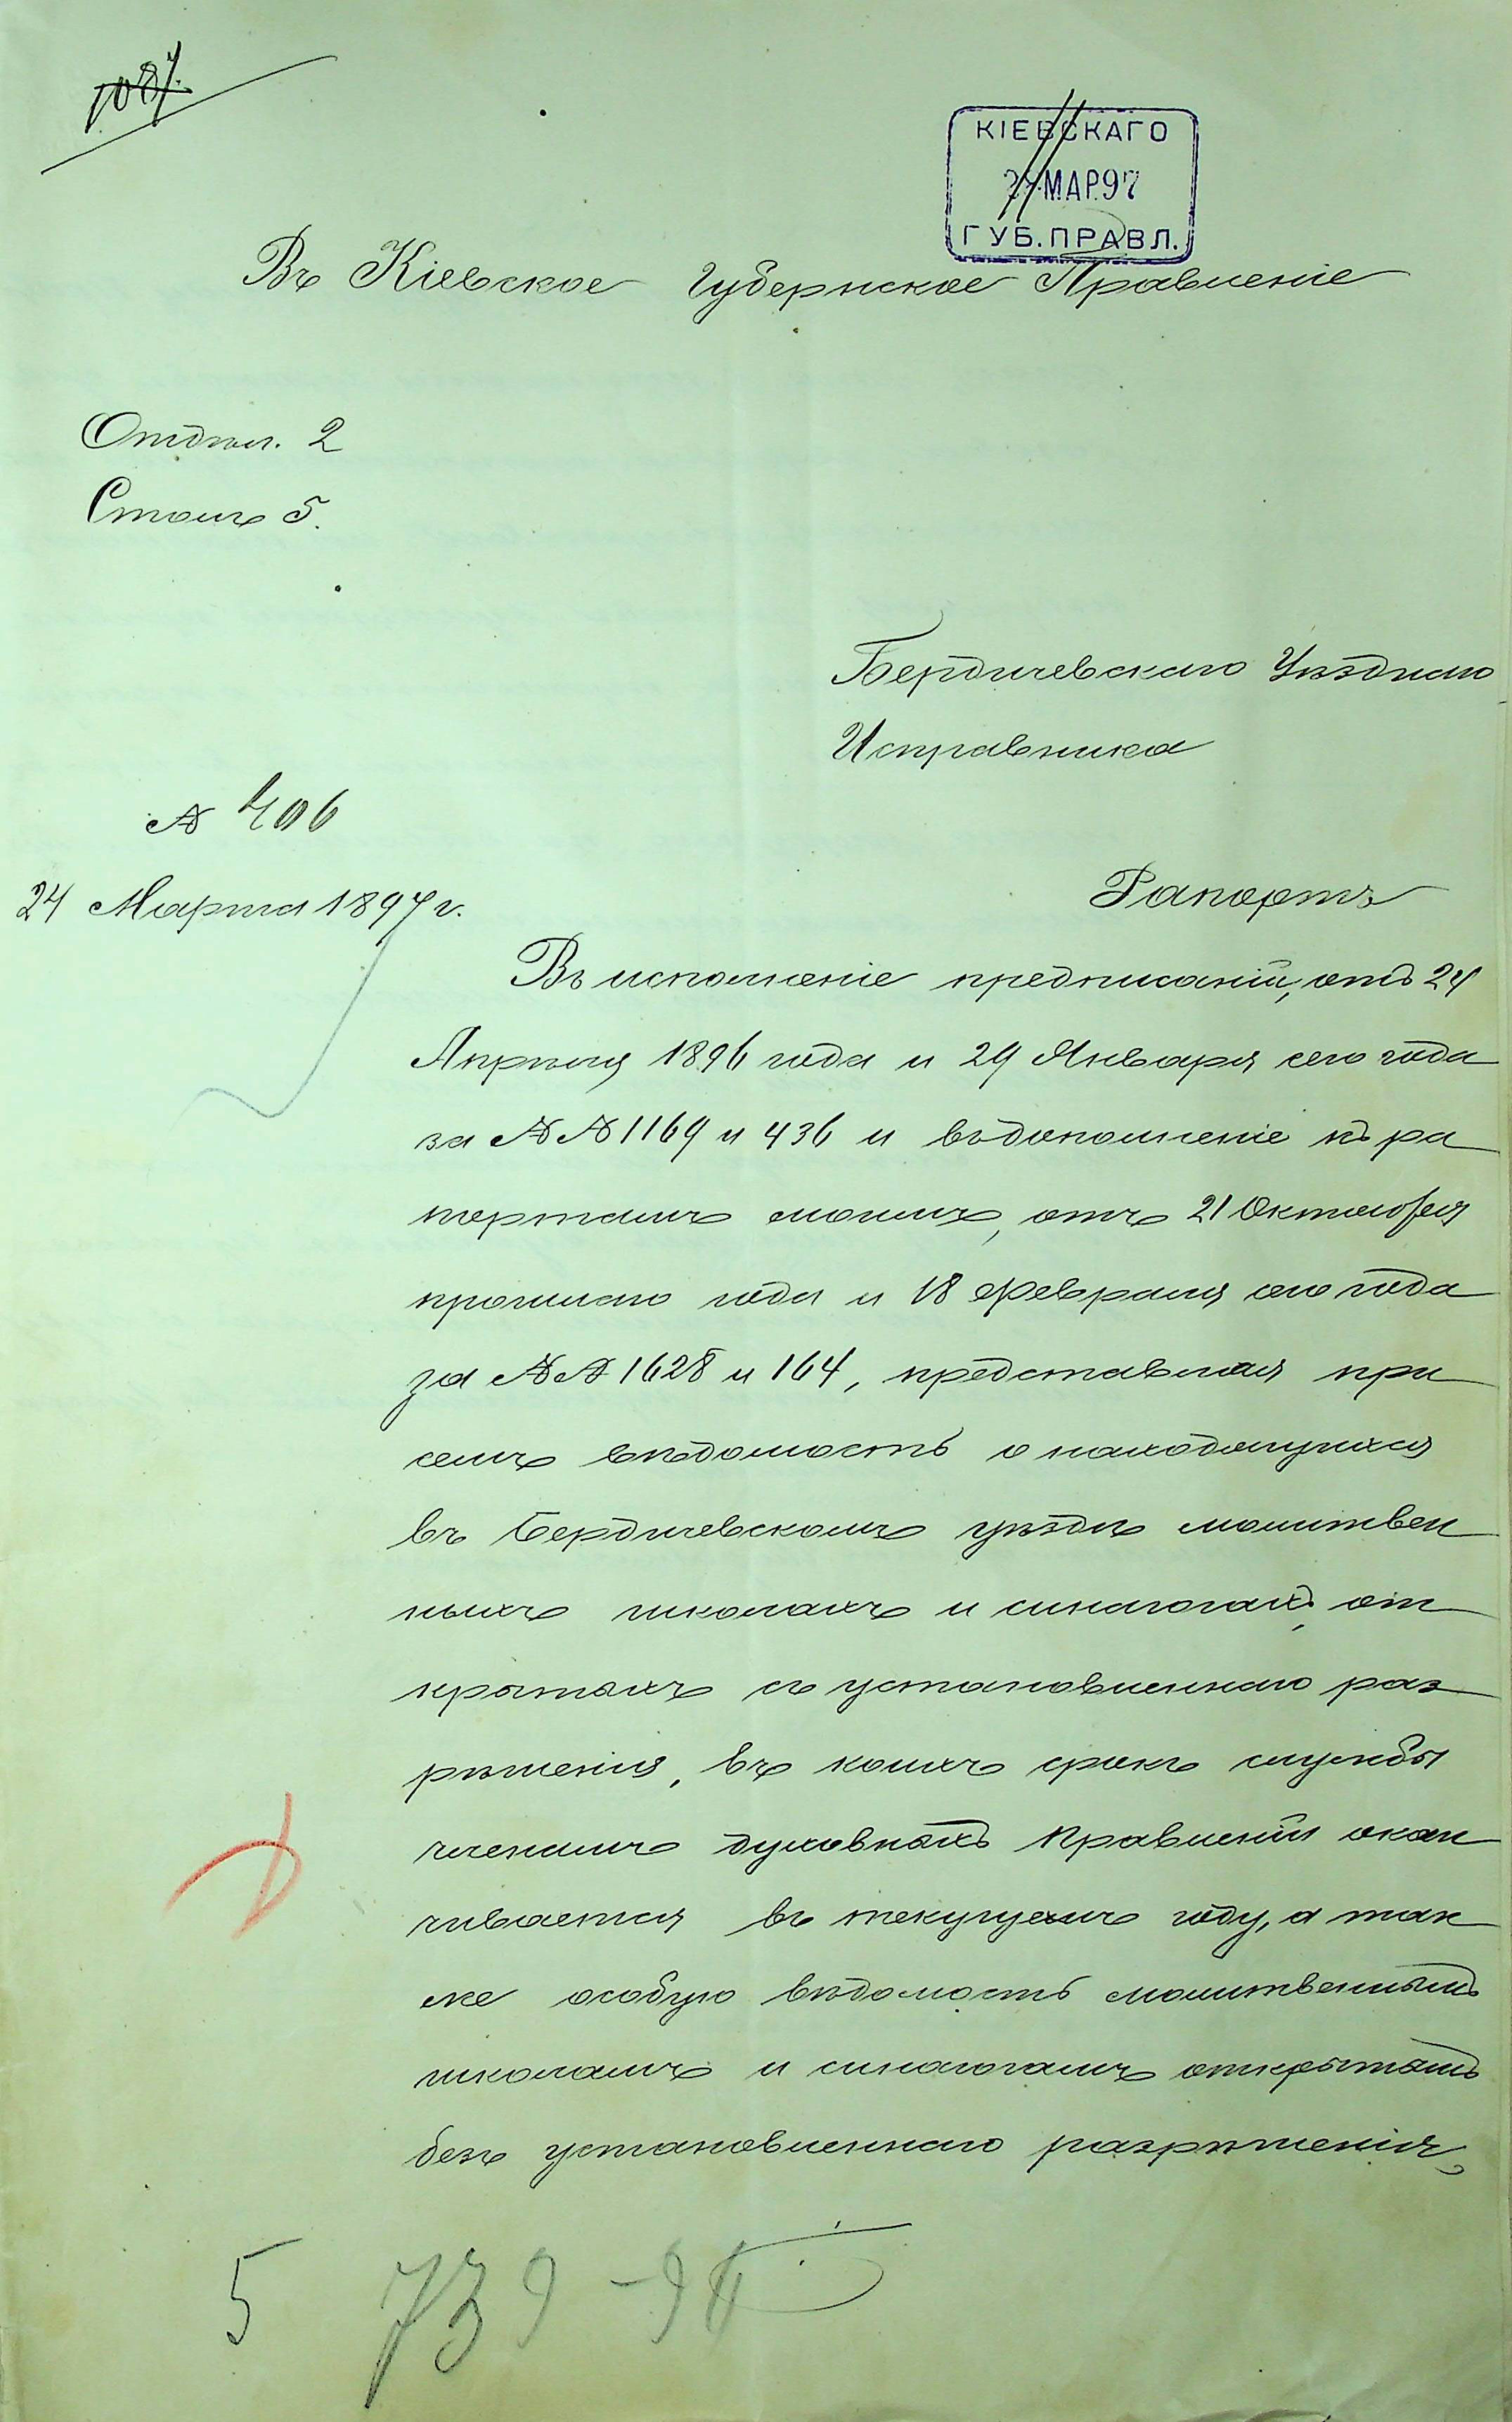 КІЕВСКАГО
МАР.97
ГУБ.ПРАВЛ.
Въ Кіевское Губернское Правленіе
Отдѣл. 2
Столъ 5.
Бердичевскаго Уѣзднаго
Исправника
№ 406
24 Марта 1897 г.
Рапортъ
Въ исполненіе предписаній, отъ 24
Апрѣля 1896 года и 29 Января сего года
за №№ 1169 и 436 и въ дополненіе къ ра
портамъ моимъ, отъ 21 Октября
прошлаго года и 18 Февраля сего года
за №№ 1628 и 164, представляя при
семъ вѣдомость о находящихся
въ Бердичевскомъ уѣздѣ молитвен
ныхъ школахъ и синагогахъ, от
крытыхъ съ установленнаго раз
рѣшенія, въ коихъ срокъ службы
членамъ духовныхъ Правленій окан
чивается въ текущемъ году, а так
же особую вѣдомость молитвеннымъ
школамъ и синагогамъ открытымъ
безъ установленнаго разрѣшенія,
5 739 - 96